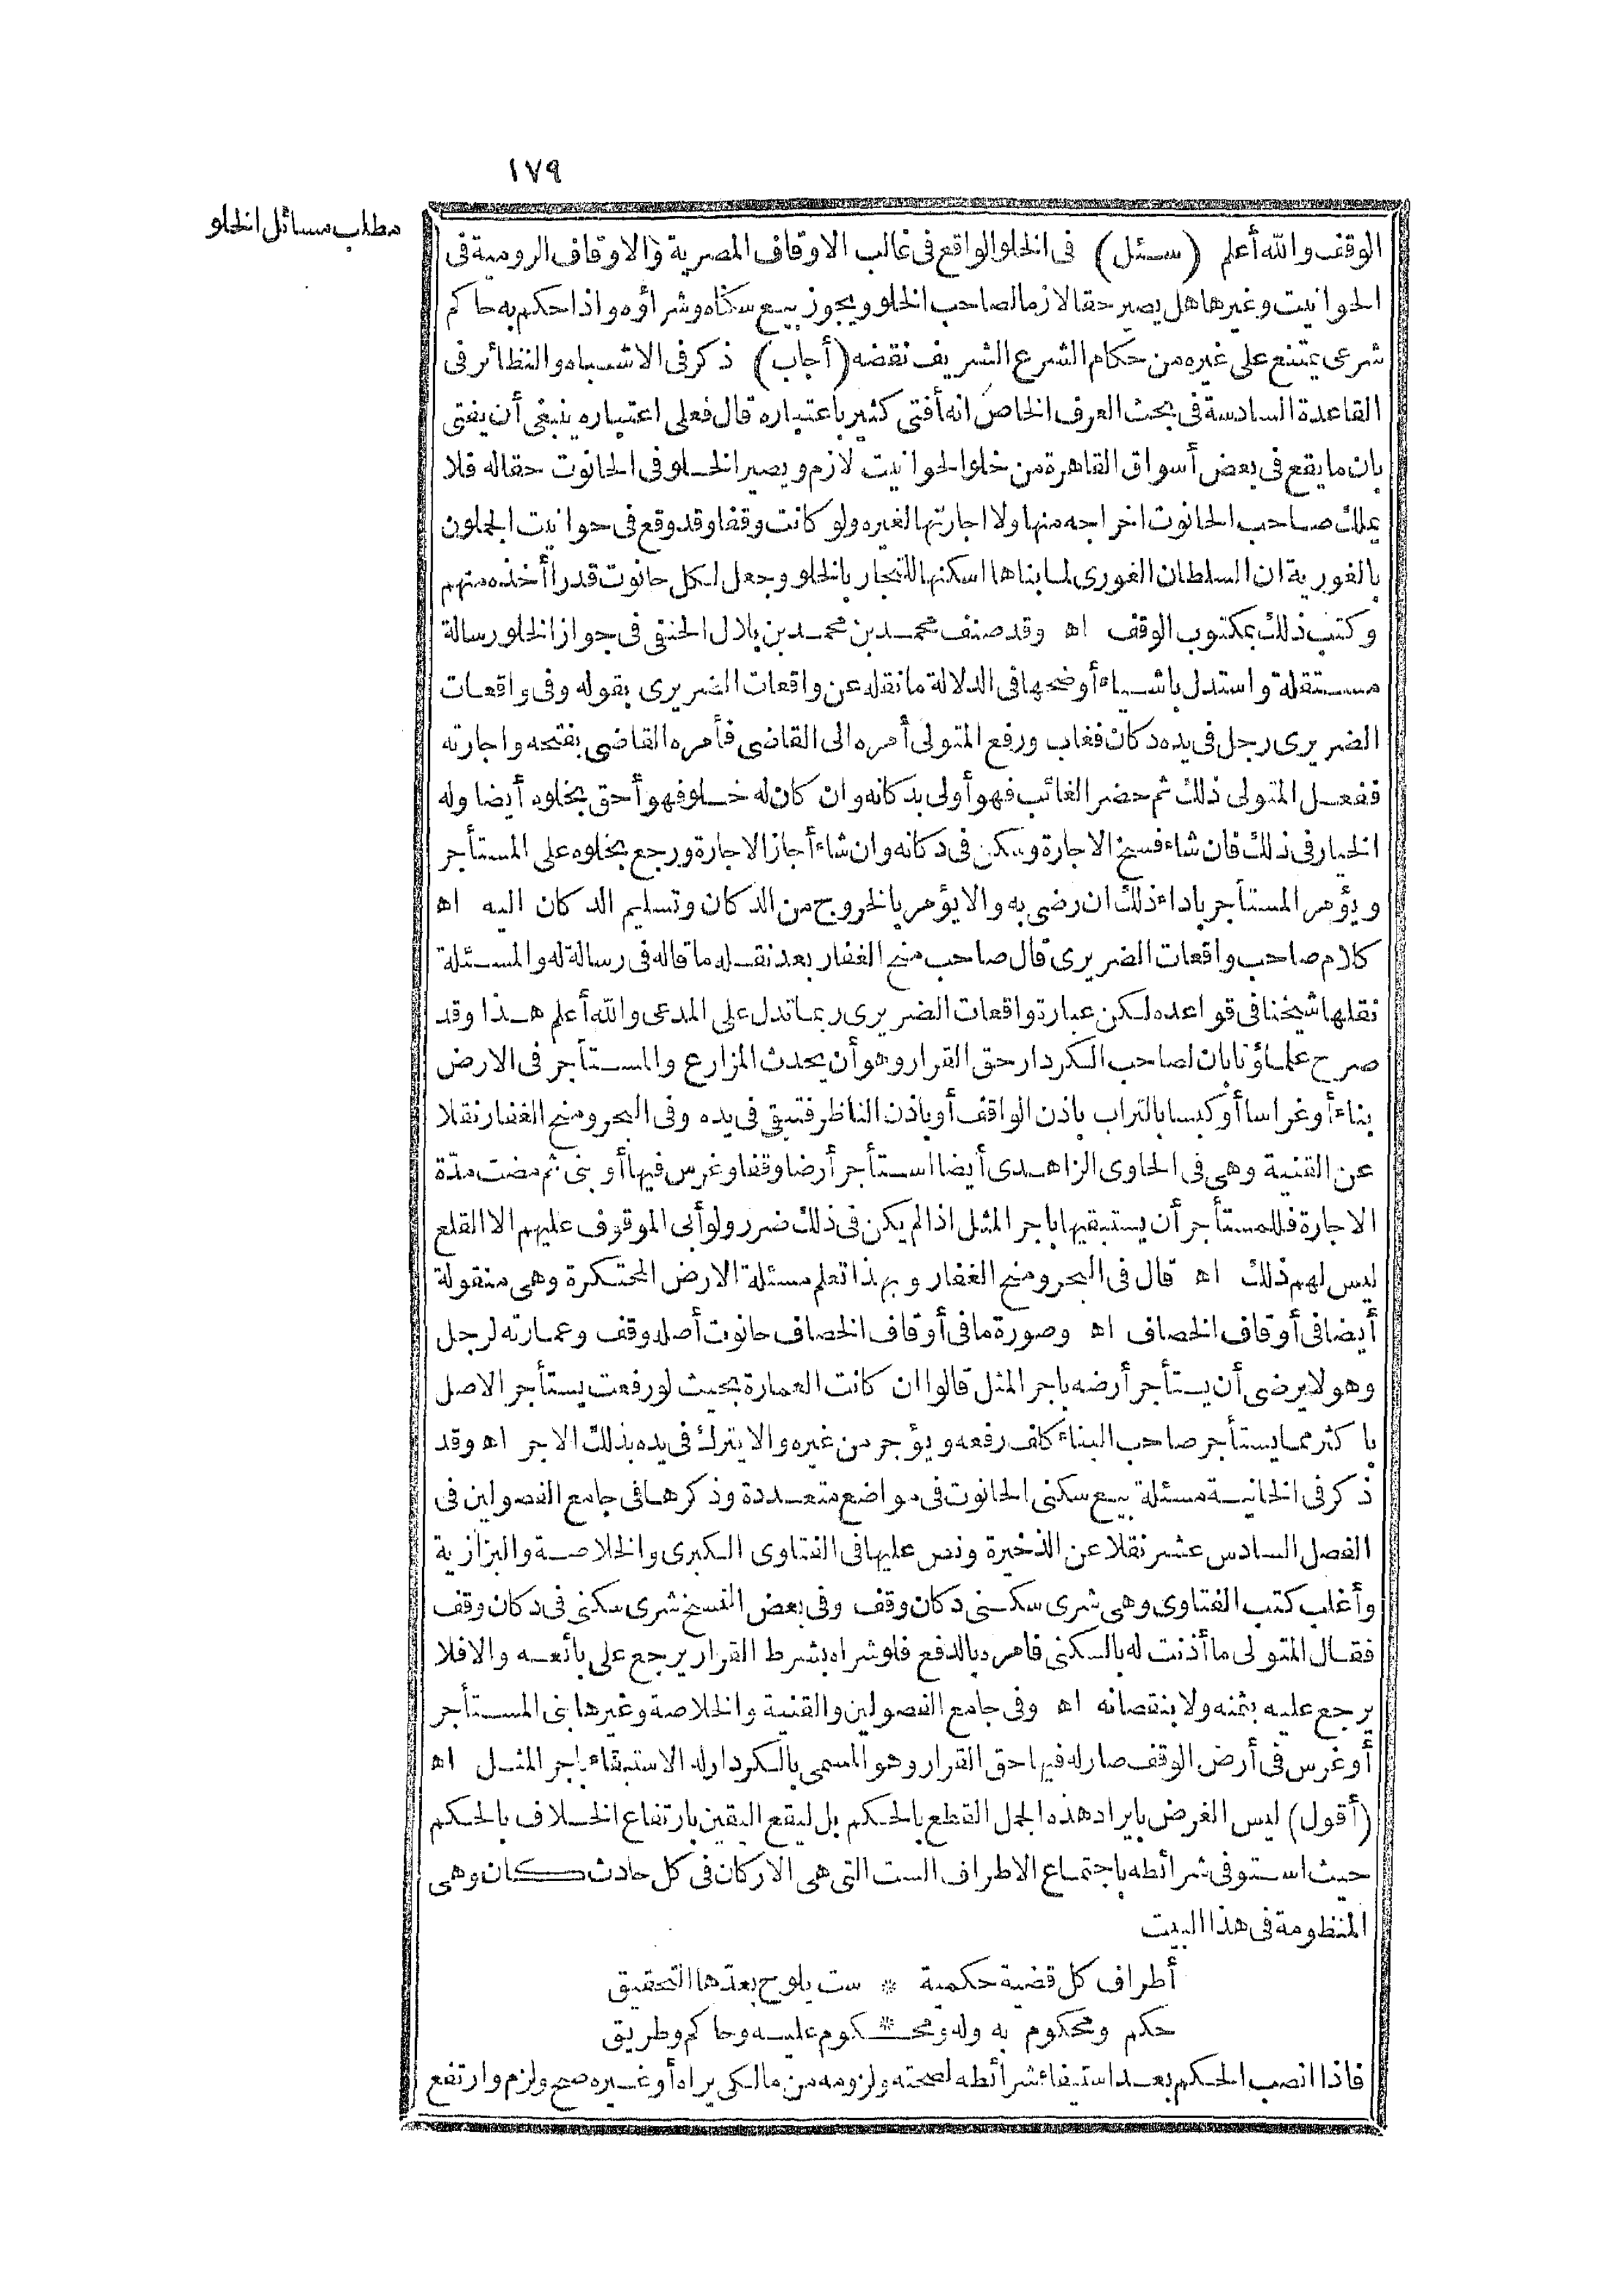 ١٧٩
مطلب مسائل الخلو
الوقف والله أعلم (سـئل) فى الخلو الواقع فى غالب الاوقاف المصرية والاوقاف الرومية فى
الحوانيت وغيرها هل يصير حقا لازما لصاحب الخلو ويجوز بيـع سكناه وشراؤه واذا حكم به حاكم
شرعى يمتنع على غيره من حكام الشرع الشريف نقضه (أجاب) ذكر فى الاشـباه والنظائر فى
القاعدة السادسة فى بحث العرف الخاص انه أفتى كثير باعتباره قال فعلى اعتباره ينبغى أن يفتى
بان ما يقع فى بعض أسواق القاهرة من خلو الحوانيت لازم ويصير الخـلو فى الحانوت حقاله فلا
يملك صاحب الحانوت اخراجه منها ولا اجارتها لغيره ولو كانت وقفا وقد وقع فى حوانيت الجملون
بالغورية ان السلطان الغورى لما بناها اسكنها للتجار بالخلو وجعل لكل حانوت قدرا أخذه منهم
وكتب ذلك بمكتوب الوقف اه وقد صنف محمـد بن محمـد بن بلال الحنفى فى جواز الخلو رسالة
مستقلة واستدل باشـياء أوضحها فى الدلالة ما نقله عن واقعات الضريرى بقوله وفى واقعات
الضريرى رجل فى يده دكان فغاب ورفع المتولى أمره الى القاضى فأمره القاضى بفتحه واجارته
ففعـل المتولى ذلك ثم حضر الغائب فهو أولى بدكانه وان كان له خـلو فهو أحق بخلوه أيضا وله
الخيار فى ذلك فان شاء فسخ الاجارة وسكن فى دكانه وان شاء أجاز الاجارة ورجع بخلوه على المستأجر
ويؤمر المستأجر باداء ذلك ان رضى به والا يؤمر بالخروج من الدكان وتسليم الدكان اليه اه
كلام صاحب واقعات الضريرى قال صاحب منح الغفار بعد نقـله ما قاله فى رسالة له والمسـئلة
نقلها شيخنا فى قواعده لكن عبارة واقعات الضريرى ربما تدل على المدعى والله أعلم هـذا وقد
صرح علماؤنا بان لصاحب الكردار حق القرار وهو أن يحدث المزارع والمسـتأجر فى الارض
بناء أو غراسا أو كبسا بالتراب باذن الواقف أو باذن الناظر فتبقى فى يده وفى البحر ومنح الغفار نقلا
عن القنية وهى فى الحاوى الزاهـدى أيضا اسـتأجر أرضا وقفا وغرس فيها أو بنى ثم مضت مدّة
الاجارة فللمستأجر أن يستبقيها باجر المثل اذا لم يكن فى ذلك ضرر ولو أبى الموقوف عليهم الا القلع
ليس لهم ذلك اه قال فى البحر ومنح الغفار وبهذا تعلم مسئلة الارض المحتكرة وهى منقولة
أيضا فى أوقاف الخصاف اه وصورة ما فى أوقاف الخصاف حانوت أصله وقف وعمـارته لرجل
وهو لا يرضى أن يسـتأجر أرضه باجر المثل قالوا ان كانت العمارة بحيث لو رفعت يستأجر الاصل
باكثر مما يستأجر صاحب البناء كلف رفعه ويؤجر من غيره والا يترك فى يده بذلك الاجر اه وقد
ذكر فى الخانيـة مسئلة بيـع سكنى الحانوت فى مواضع متعـددة وذكرهـا فى جامع الفصولين فى
الفصل السادس عشر نقلا عن الذخيرة ونص عليها فى الفتاوى الكبرى والخلاصـة والبزازية
وأغلب كتب الفتاوى وهى شرى سكـنى دكان وقف وفى بعض النسخ شرى سكنى فى دكان وقف
فقـال المتولى ما أذنت له بالسكنى فامره بالدفع فلو شراه بشرط القرار يرجع على بائعـه والا فلا
يرجع عليه بثمنه ولا بنقصانه اه وفى جامع الفصولين والقنية والخلاصة وغيرها بنى المسـتأجر
أو غرس فى أرض الوقف صار له فيها حق القرار وهو المسمى بالكردار له الاستبقاء باجر المثـل اه
(أقول) ليس الغرض بايراد هذه الجمل القطع بالحكم بل ليقع اليقين بارتفاع الخـلاف بالحكم
حيث اسـتوفى شرائطه باجتمـاع الاطراف الست التى هى الاركان فى كل حادث كـان وهى
المنظومة فى هذا البيت
أطراف كل قضية حكمية * ست يلوح بعدّها التحقيق
حكم ومحكوم به وله ومحـ * ـكوم عليـه وحاكم وطريق
فاذا انصب الحكم بعـد استيفاء شرائطه لصحته ولزومه من مالكى يراه أو غـيره صح ولزم وارتفع